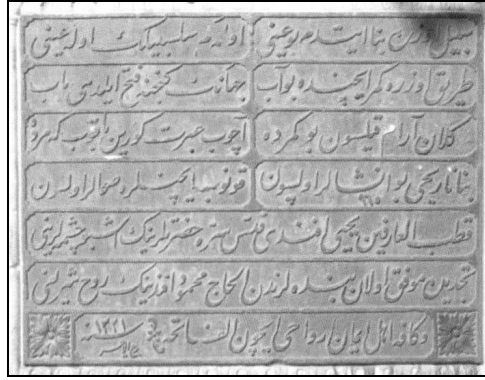 سبیل اوزره بنا ایتدم بو عینی اوله که سلسبیلك اوله عینی
طریق اوزره کمر ایچنده بو آب جهانك کنجنه فتح ایلدی باب
کلان آرام قیلسون بو کمرده آچوب عبرت کوزین باقوب
بنا تاریخی بو انشالر اولسون قونوب ایچنلره صحالر اولسون
قطب العارفین یحیی افندی قدس سره حضرتلرینك اشبو چشمه لرینی
تجدیدن موفق اولان بنده لرندن الحاج محمود افندینك روح شریفنی
وکافه اهل ایمان ارواحی ایچون الفاتحه سنه ۱۳۲۱